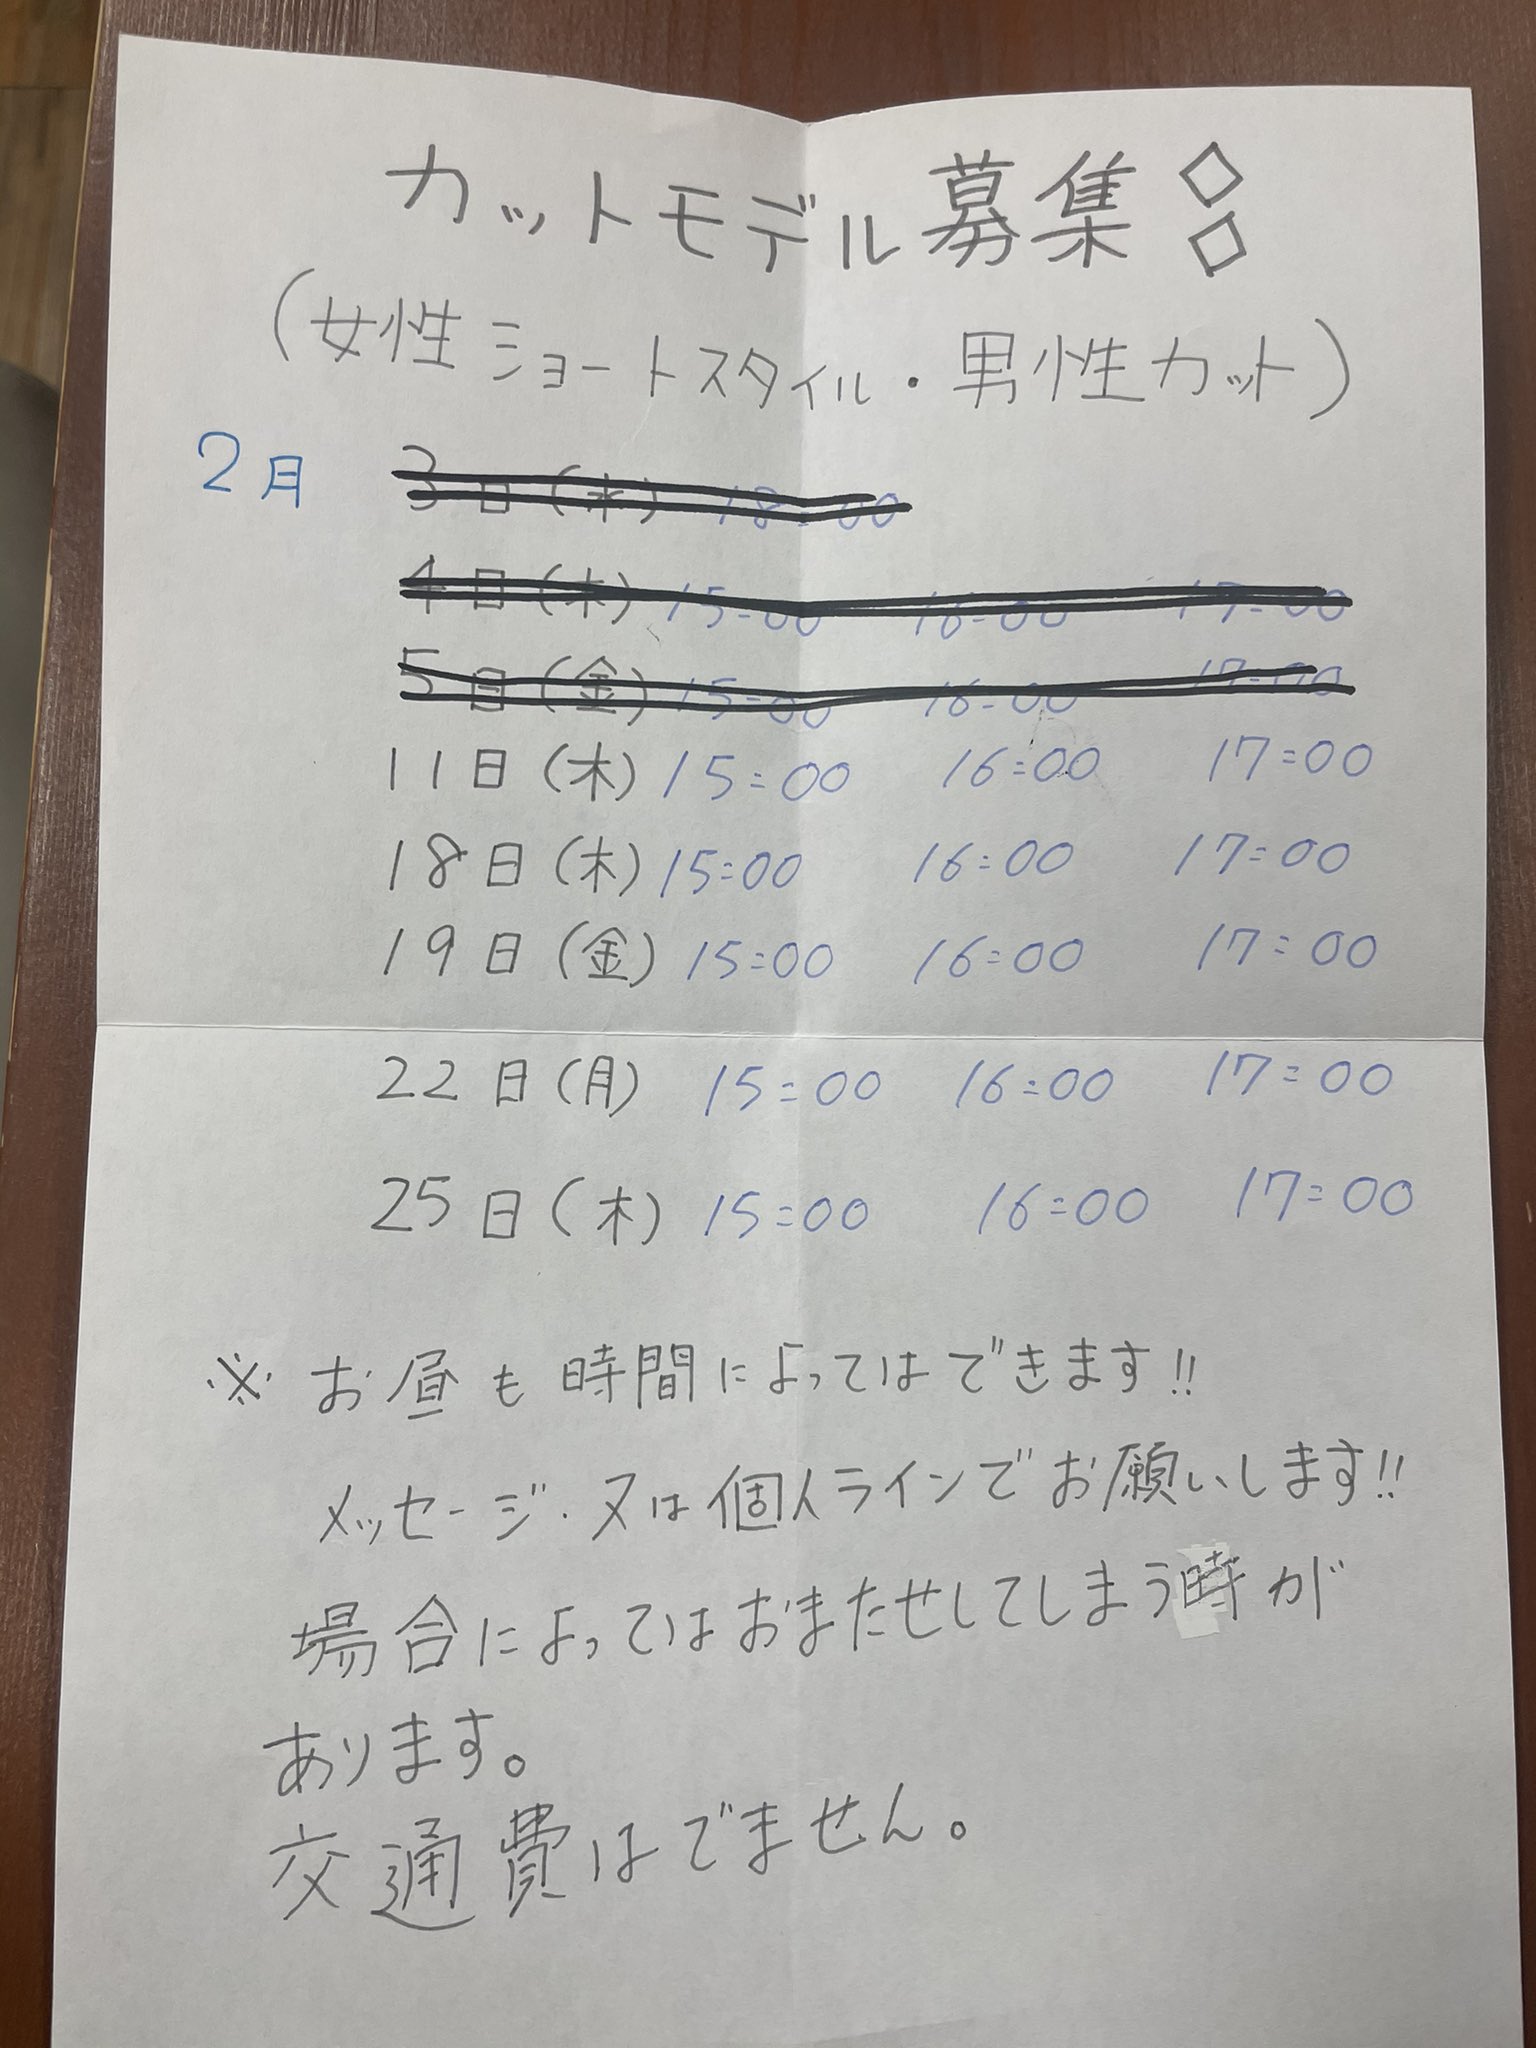 カットモデル募集◇◇
(女性ショートスタイル・男性カット)
2月 3日(水) 18:00
4日(木) 15:00 16:00 17:00
5日(金) 15:00 16:00 17:00
11日(木) 15:00 16:00 17:00
18日(木) 15:00 16:00 17:00
19日(金) 15:00 16:00 17:00
22日(月) 15:00 16:00 17:00
25日(木) 15:00 16:00 17:00
※お昼も時間によってはできます!!
メッセージ・又は個人ラインでお願いします!!
場合によってはおまたせしてしまう時が
あります。
交通費はでません。